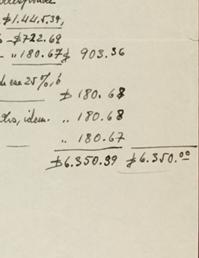 $1.445.39,
- $722.69
- " 180.67 $ 903.36
25%, 6
$ 180.68
idem. " 180.68
" 180.67
$6.350.39 $6.350.00